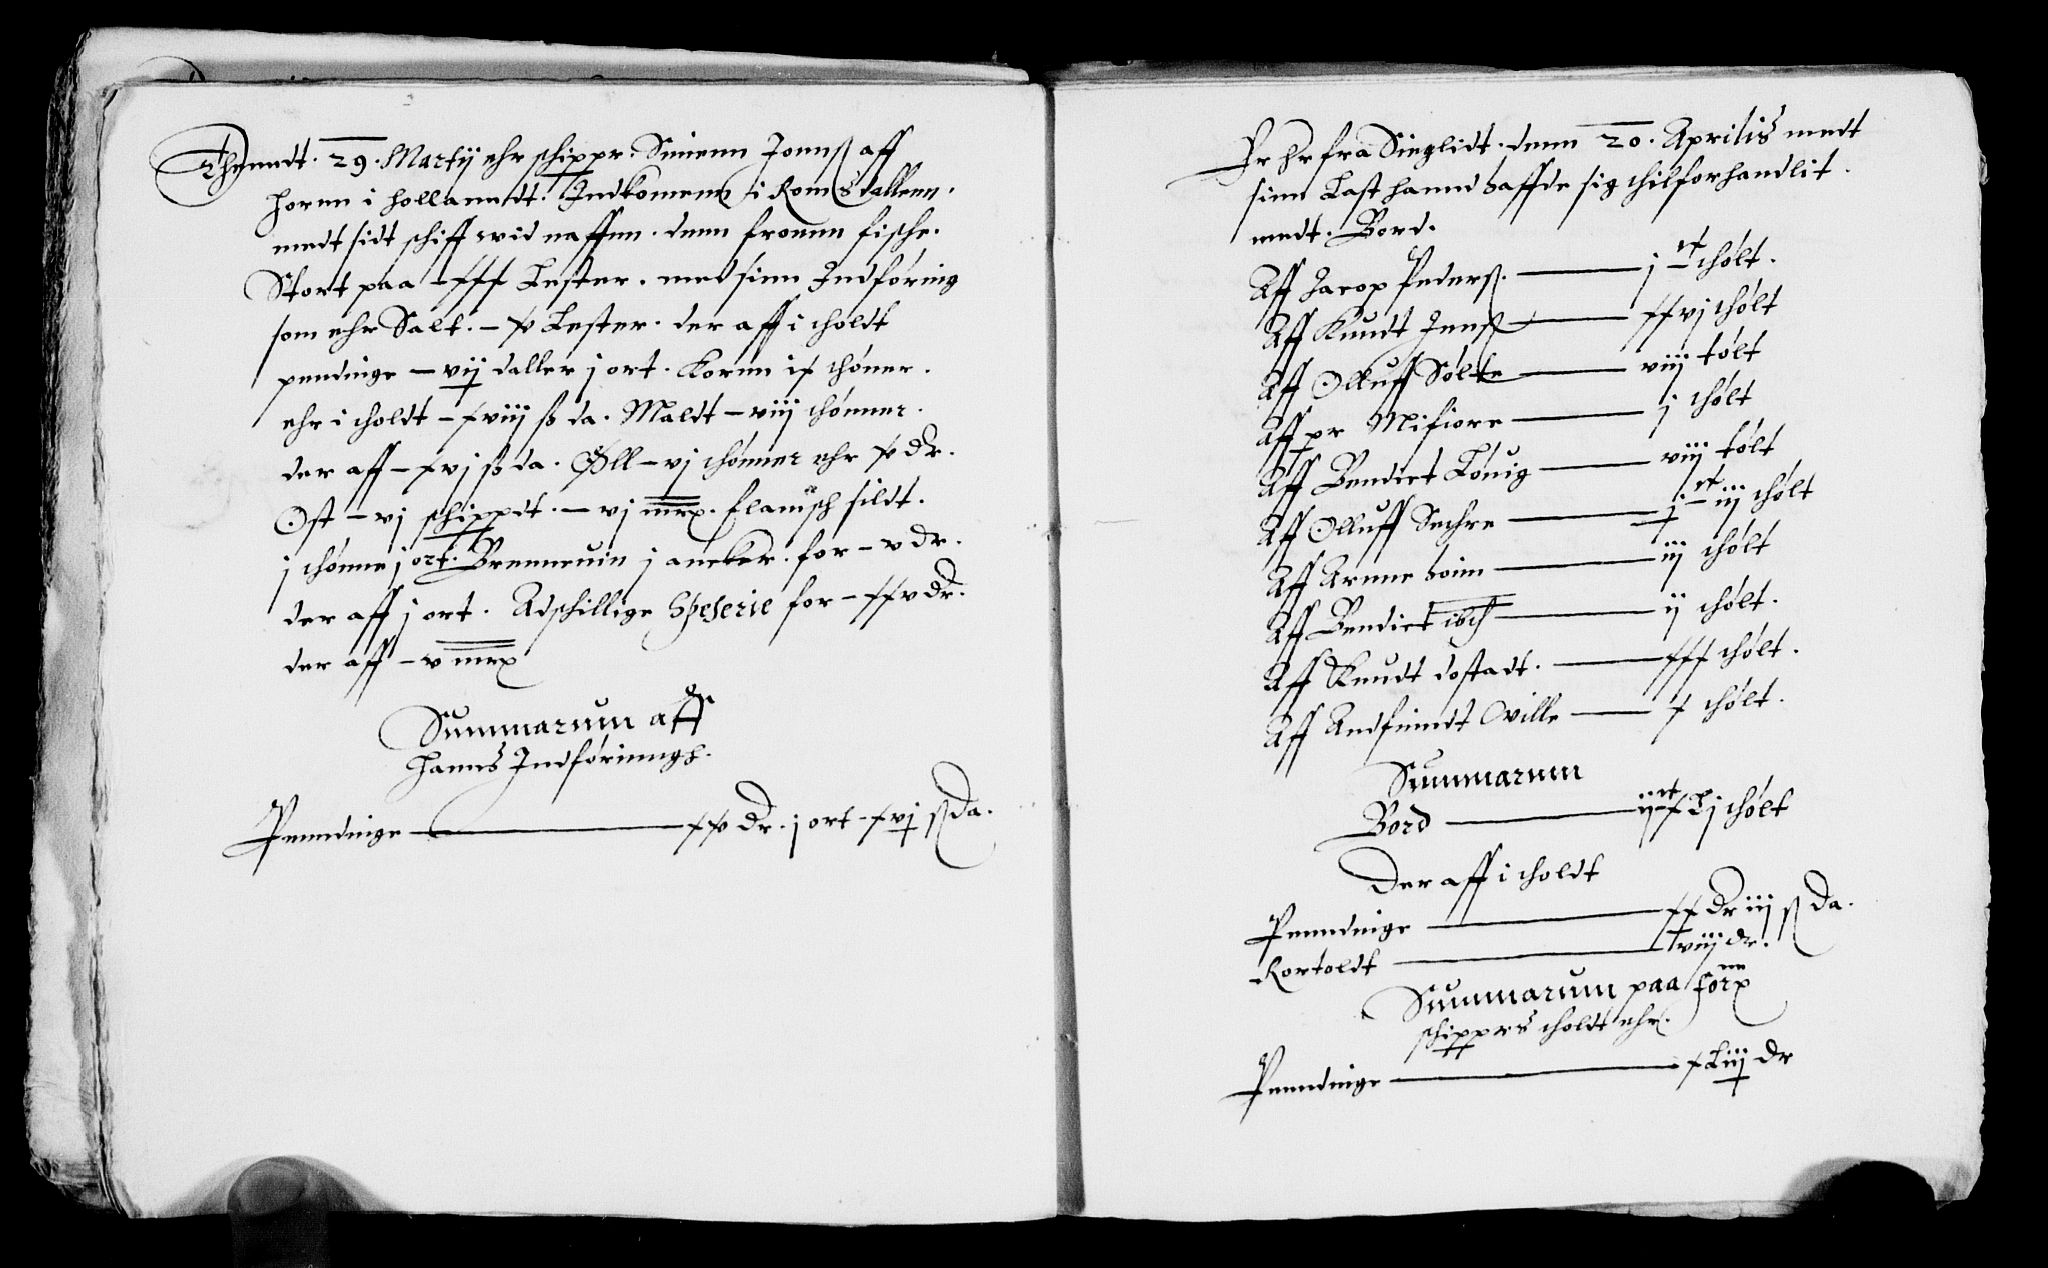 Thennd t. 29. Martij ehr schippr. Simenn Jonnß aff
Hornn i Hollanndt. Indkomenn i Romsdallenn.
medt sidt schiff wid naffnn. denn fronnn fische.
Stort paa - xxx Lester. med sinn Indføring
som ehr Salt. - x Lester. der aff i tholdt
pendinge - vij daller j ort. Kornn ix thøner.
ehr i tholdt - xviij ß da. Maldt - viij thønner.
der aff - xvj ß da. Øll - vj thønner ehr x dr.
Ost - vj schippdt. - vj mrx. flamsch sildt.
j thønne j ort. Brenneuin j ancker. for - v dr.
der aff j ort. Adschillige Speserie for - xxv dr.
der aff - v mrx
Summarum aff
Hanns Indføringh.
Penndinge — xx dr. j ort - xvj ß da.
Er hr fra Sieglidt. denn 20. Aprilis medt
sinn Last hannd haffde sig thilforhandlit.
medt. Bord.
Aff Jacop Pederß. — j ct thølt.
Aff Knudt Jenß — xxvj thølt
Aff Olluff Solte — viij tølt
Aff pr Mifiore — j thølt
Aff Bendict Lønig — viij tølt
Aff Olluff Sechre — j ct iij thølt
Aff Arnne hoim — iij thølt
Aff Bendict ibid — ij thølt.
Aff Knudt dostadt. — xxx thølt.
Aff Andfindt Oville — x thølt.
Summarum
Bord — ij ct xLj thølt
Der aff i tholdt
Penndinge — xx dr iij ß da.
Kortoldt — viij dr.
Summarum paa forn
schippers tholdt ehr.
Penndinge — xLiij dr